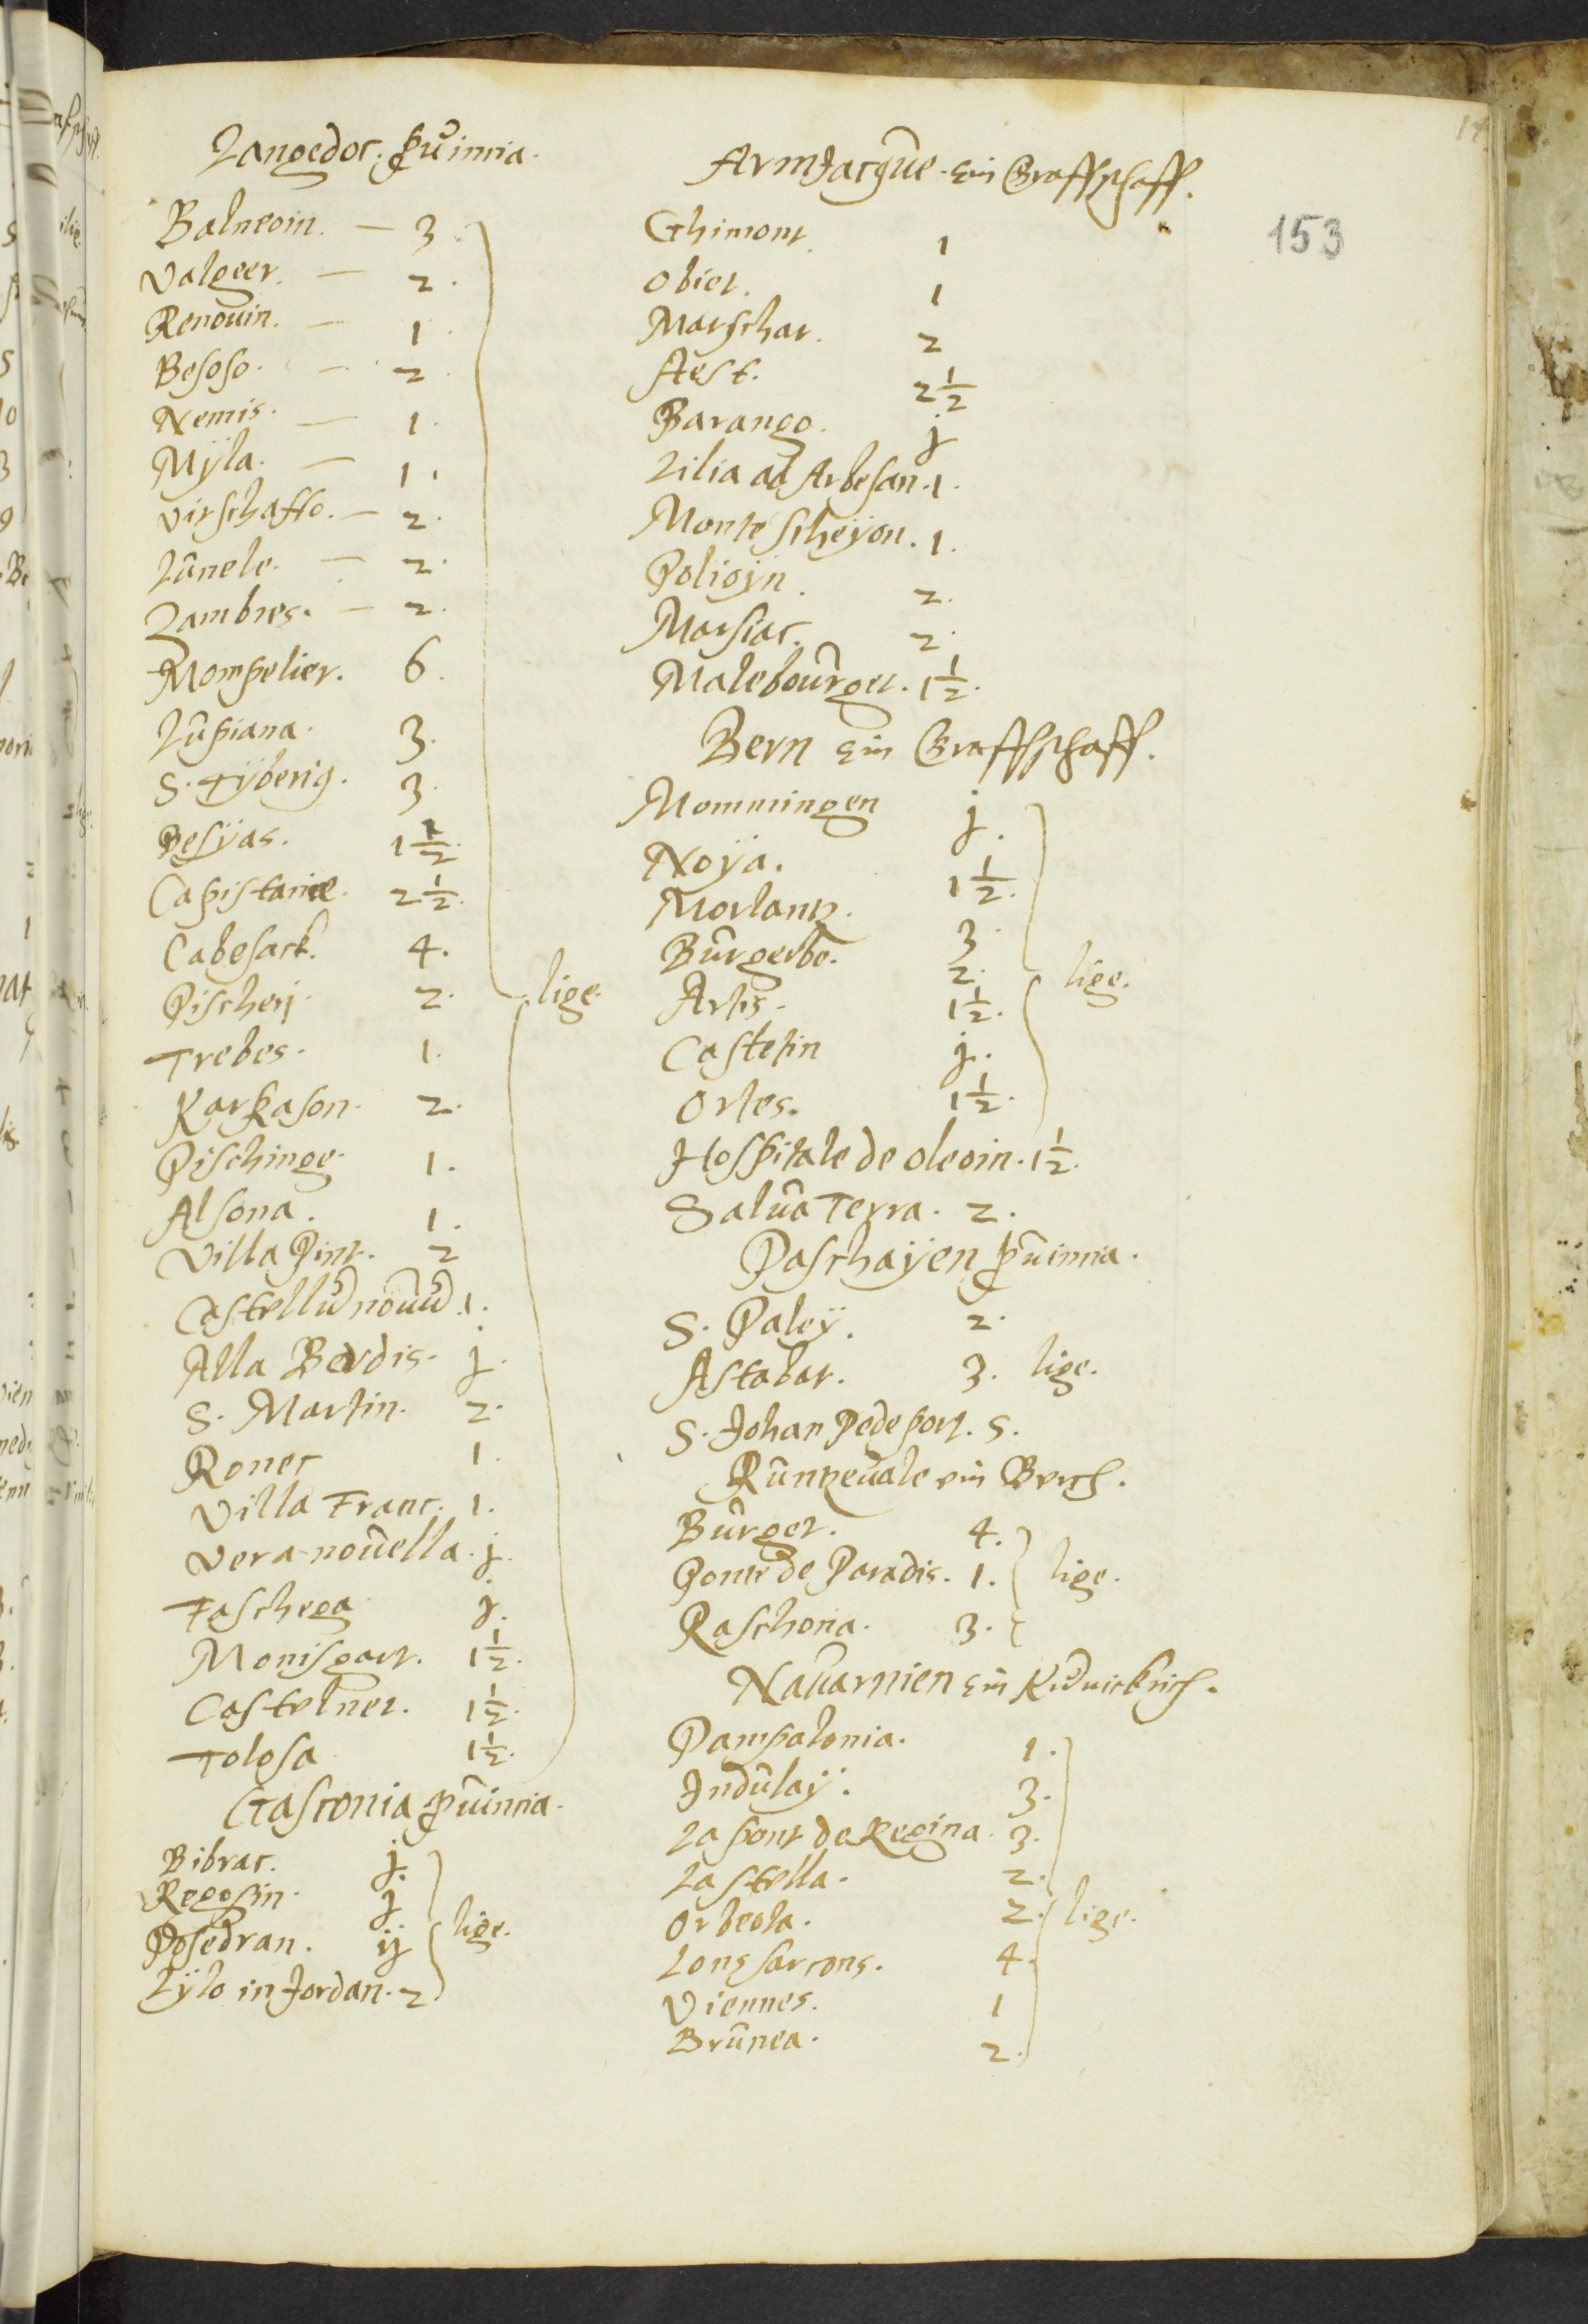 Langedoc, pũincia.
Balneoin. — 3.
Valgeer. — 2.
Renouin. — 1.
Besoso. — 2.
Nemis. — 1.
Mÿla. — 1.
Virschaffo. — 2.
Lũnele. — 2.
Lambres. — 2.
Mompelier. 6.
Lũpiana. 3.
S. Tÿberig. 3.
Besÿas. 1½.
Capistanie. 2½.
Cabesack. 4.
Pischerj. 2.
lige.
Trebes. 1.
Karkason. 2.
Pischinge. 1.
Alsona. 1.
Villa Pint. 2
Castellũ nouũ 1.
Alla Berdis. j.
S. Martin. 2.
Roner 1.
Villa Franc. 1.
Vera nouella. j.
Faschega j.
Monisgart. 1½.
Castelnet. 1½.
Tolosa 1½.
Gasconia pũincia.
Bibrac. j.
Regosin. j
Posedran. ij
lige.
Lÿlo in Jordan. 2
Armjacque. ein Graffschafft.
153
Ghimont. 1
Obiet. 1
Marschar. 2
Aest. 2½
Barango. j
Lilia ad Arbesan. 1.
Monte scheÿon. 1.
Poligÿn. 2.
Marsiac. 2.
Malebourget. 1½.
Bern ein Graffschafft.
Mommingen j.
Noÿa. 1½.
Morlantz. 3.
Bũrgerbe. 2.
lige.
Artis. 1½.
Castetin j.
Ortes. 1½.
Hospitale de oleoin. 1½.
Salũa Terra. 2.
Paschaÿen pũincia.
S. Paleÿ. 2.
Astabat. 3. lige.
S. Johan Pedeport. 5.
Rũntzeuale ein Berg.
Bũrget. 4.
Ponte de Paradis. 1. lige.
Raschona. 3.
Nauarnien ein Kũnickrich.
Pampalonia. 1.
Indũlaÿ. 3.
La pont de Regina. 3.
La stella. 2.
Orbeola. 2. lige.
Long sarcons. 4.
Viennes. 1
Brũnea. 2.